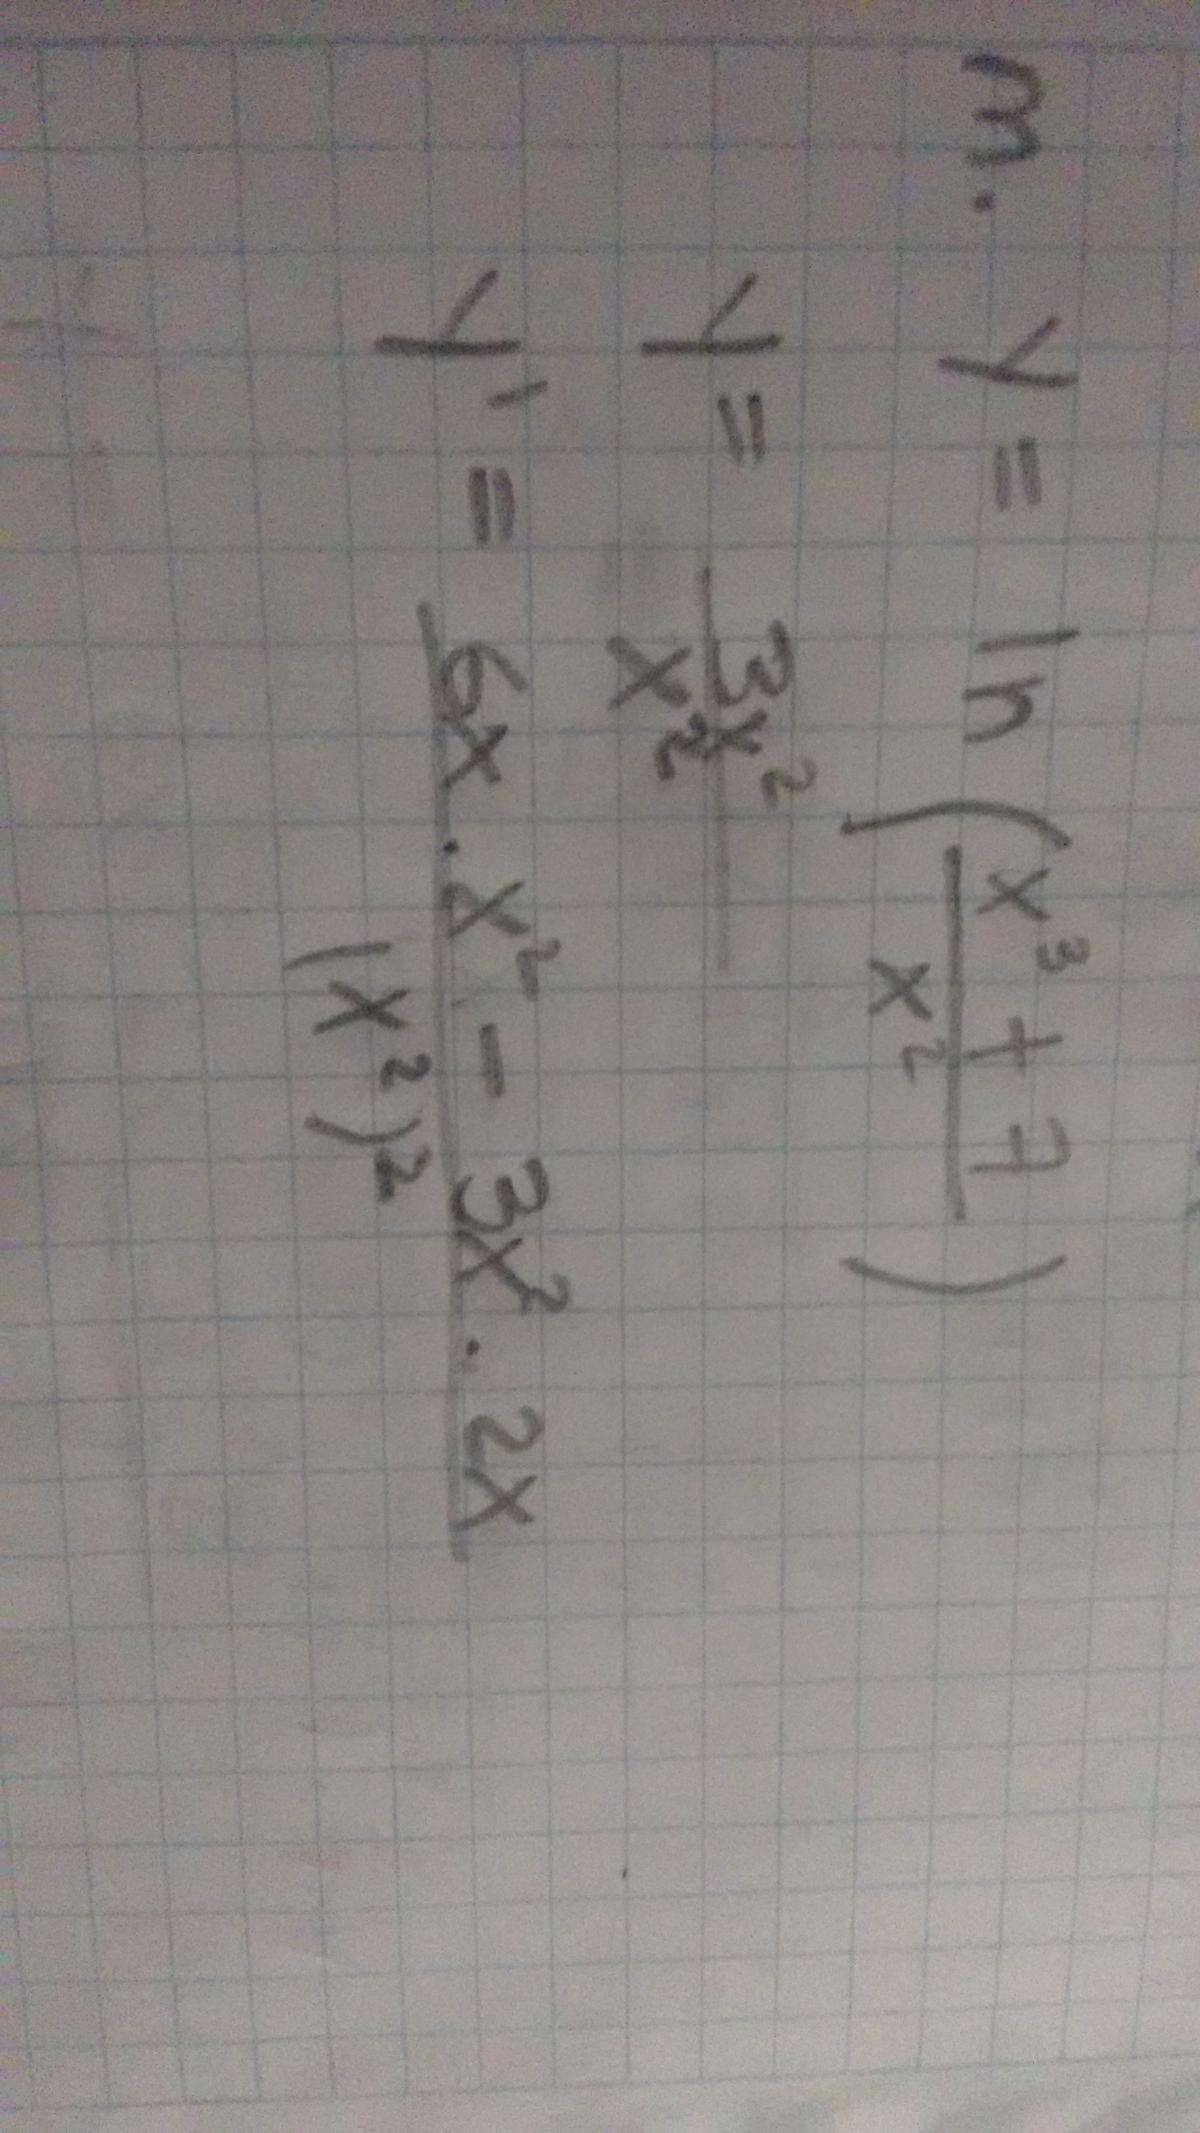 m. y = ln ( x³ + 7 / x² )
y = 3x² / x²
y' = 6x . x² - 3x² . 2x / (x²)²